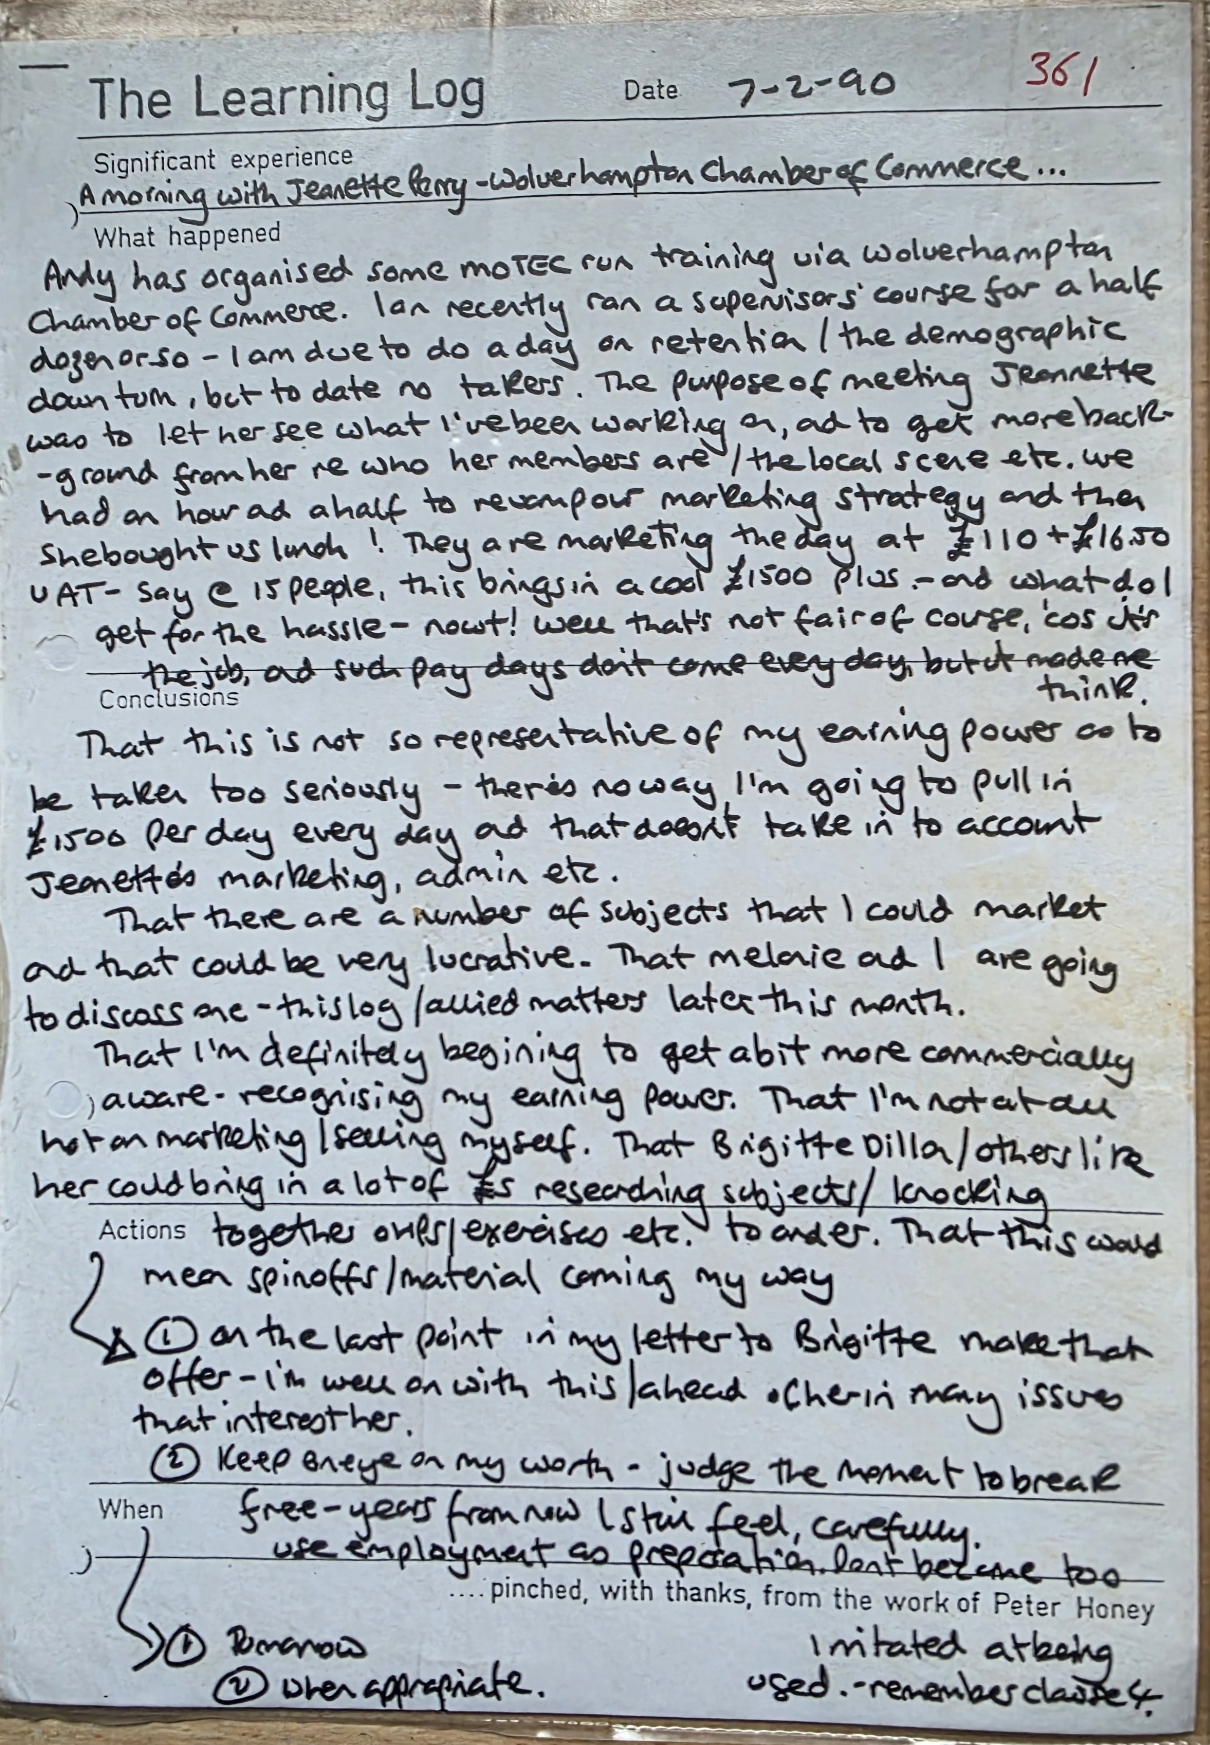 The Learning Log Date 7-2-90 361
Significant experience
A morning with Jeanette Perry - Wolverhampton Chamber of Commerce...
What happened
Andy has organised some MOTEC run training via Wolverhampton
Chamber of Commerce. Ian recently ran a supervisors' course for a half
dozen or so - I am due to do a day on retention / the demographic
down turn, but to date no takers. The purpose of meeting Jeannette
was to let her see what I've been working on, ad to get more back-
-ground from her re who her members are / the local scene etc. we
had an hour ad a half to revamp our marketing strategy and then
she bought us lunch! They are marketing the day at £110 + £16.50
VAT - say @ 15 people, this brings in a cool £1500 plus. - and what do I
get for the hassle - nowt! well that's not fair of course, 'cos it's
the job, ad such pay days don't come every day, but it made me
think.
Conclusions
That this is not so representative of my earning power as to
be taken too seriously - there's no way I'm going to pull in
£1500 per day every day ad that doesn't take in to account
Jeanette's marketing, admin etc.
That there are a number of subjects that I could market
and that could be very lucrative. That Melanie ad I are going
to discuss one - this log / allied matters later this month.
That I'm definitely begining to get a bit more commercially
aware - recognising my earning power. That I'm not at all
hot on marketing / selling myself. That Brigitte Dillon / others like
her could bring in a lot of £s researching subjects / knocking
Actions together OHPs / exercises etc. to order. That this would
mean spinoffs / material coming my way
① On the last point in my letter to Brigitte make that
offer - I'm well on with this / ahead of her in many issues
that interest her.
② Keep an eye on my worth - judge the moment to break
When free - years from now I still feel, carefully.
use employment as preparation. Don't become too
.... pinched, with thanks, from the work of Peter Honey
① Tomorrow irritated at being
② when appropriate. used. - remember clause 4.